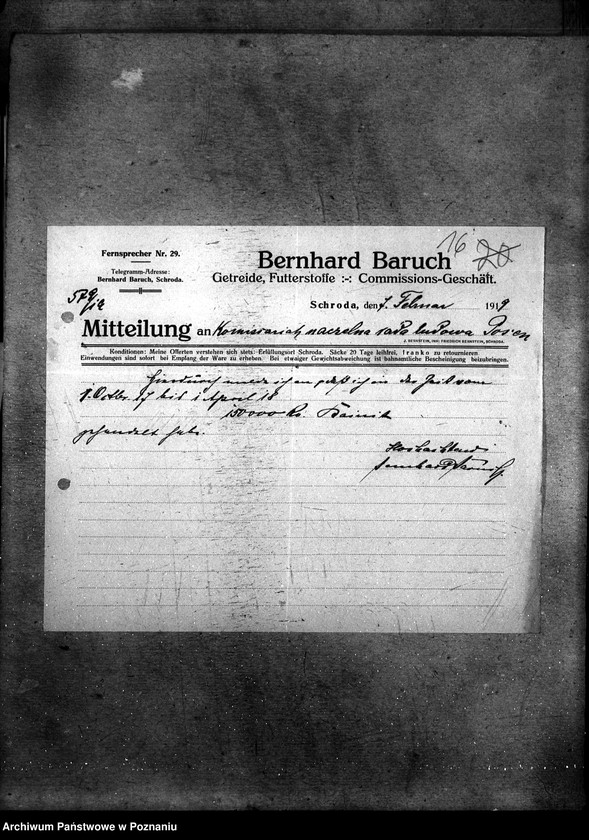 16 20
Fernsprecher Nr. 29.
Telegramm-Adresse:
Bernhard Baruch, Schroda.
Bernhard Baruch
Getreide, Futterstoffe :-: Commissions-Geschäft.
Schroda, den 7. Februar 1919
Mitteilung an Komissariat naczelna rada ludowa Posen
J. BERNSTEIN, INH. FRIEDRICH BERNSTEIN, SCHRODA.
Konditionen: Meine Offerten verstehen sich stets: Erfüllungsort Schroda. Säcke 20 Tage leihfrei, franko zu retournieren.
Einwendungen sind sofort bei Empfang der Ware zu erheben. Bei etwaiger Gewichtsabweichung ist bahnamtliche Bescheinigung beizubringen.
Hierdurch melde ich an, daß ich in der Zeit vom
1. Octbr. 17 bis 1 April 18
Kainit
gehandelt habe.
Hochachtend
Bernhard Baruch
Archiwum Państwowe w Poznaniu